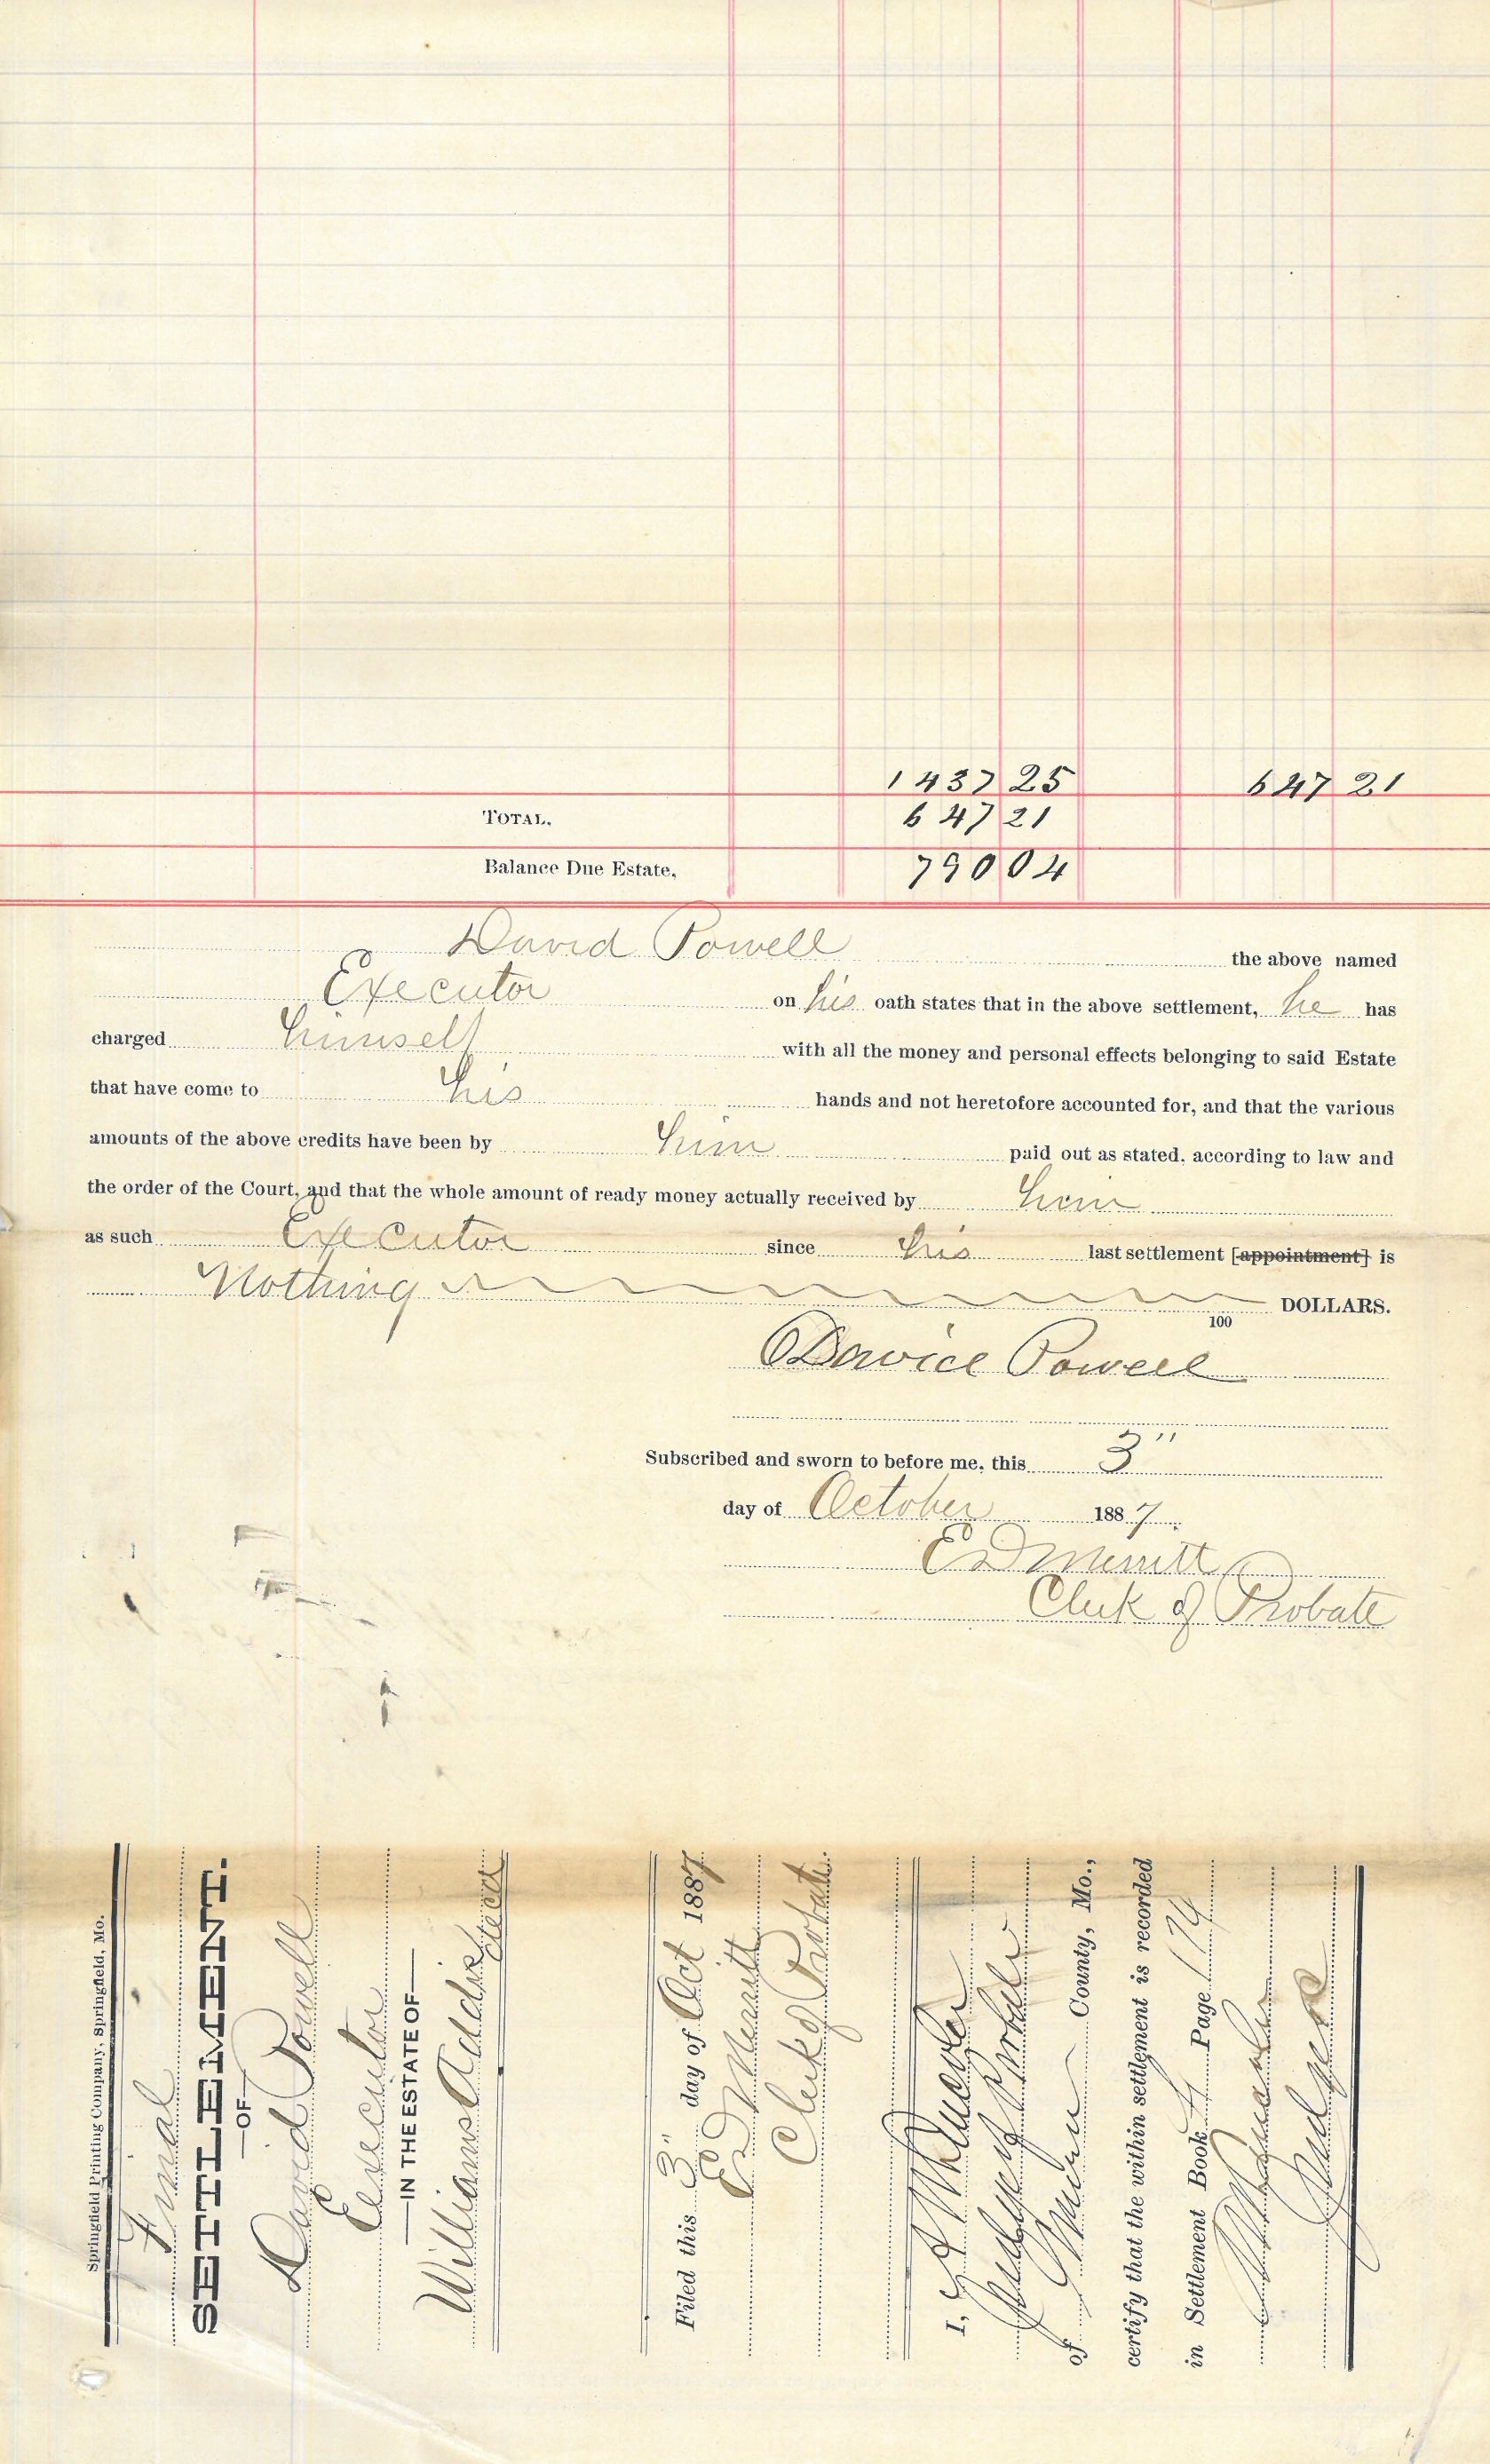 1437 25 647 21
TOTAL. 647 21
Balance Due Estate, 790 04
David Powell the above named
Executor on his oath states that in the above settlement, he has
charged himself with all the money and personal effects belonging to said Estate
that have come to his hands and not heretofore accounted for, and that the various
amounts of the above credits have been by him paid out as stated, according to law and
the order of the Court, and that the whole amount of ready money actually received by him
as such Executor since his last settlement [appointment] is
Nothing 100 DOLLARS.
David Powell
Subscribed and sworn to before me, this 3"
day of October 1887.
E D Merritt
Clerk of Probate
Springfield Printing Company, Springfield, Mo.
Final
SETTLEMENT.
—OF—
David Powell
Executor
—IN THE ESTATE OF—
Williams Addis decd
Filed this 3" day of Oct 1887
E D Merritt
Clerk of Probate.
I,
Judge of Probate
of County, Mo.,
certify that the within settlement is recorded
in Settlement Book 4 Page 174
Judge